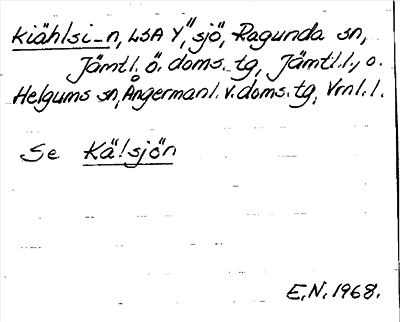 kiählsi-n, LSA Y, "sjö", Ragunda sn,
Jämtl. ö. doms. tg, Jämtl. l., o.
Helgums sn, Ångermanl. v. doms. tg, Vrnl. l.
Se Kälsjön
E.N. 1968.